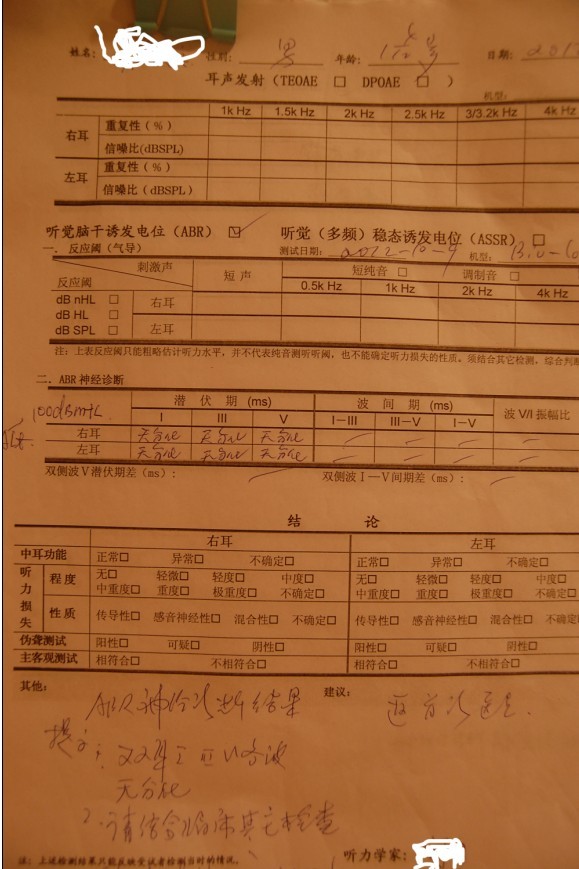 姓名: 性别: 男 年龄: 日期: 201
耳声发射（TEOAE □ DPOAE □ ）
机型:
1k Hz 1.5k Hz 2k Hz 2.5k Hz 3/3.2k Hz 4k Hz
右耳 重复性（%）
信噪比(dBSPL)
左耳 重复性（%）
信噪比（dBSPL）
听觉脑干诱发电位（ABR）☑ 听觉（多频）稳态诱发电位（ASSR）□
一. 反应阈（气导） 测试日期: 2012-10-9 机型:
刺激声 短声 短纯音 □ 调制音 □
反应阈 0.5k Hz 1k Hz 2k Hz 4k Hz
dB nHL □ 右耳
dB HL □
dB SPL □ 左耳
注：上表反应阈只能粗略估计听力水平，并不代表纯音测听听阈，也不能确定听力损失的性质。须结合其它检测，综合判断
二. ABR 神经诊断
100dBnHL 潜伏期 (ms) 波间期 (ms) 波 V/I 振幅比
I III V I—III III—V I—V
右耳 无分化 无分化 无分化 — — — —
左耳 无分化 无分化 无分化 — — — —
双侧波 V 潜伏期差（ms）: 双侧波 I—V 间期差（ms）:
结 论
右耳 左耳
中耳功能 正常□ 异常□ 不确定□ 正常□ 异常□ 不确定□
听力损失 程度 无□ 轻微□ 轻度□ 中度□ 无□ 轻微□ 轻度□ 中度□
中重度□ 重度□ 极重度□ 不确定□ 中重度□ 重度□ 极重度□ 不确定□
性质 传导性□ 感音神经性□ 混合性□ 不确定□ 传导性□ 感音神经性□ 混合性□ 不确定
伪聋测试 阳性□ 可疑□ 阴性□ 阳性□ 可疑□ 阴性□
主客观测试 相符合□ 不相符合□ 相符合□ 不相符合□
其他: ABR神经诊断结果 建议: 返首诊医生.
提示: 双耳 I III V 各波
无分化
2. 请结合临床其它检查
听力学家:
注: 上述检测结果只能反映受试者检测当时的情况。